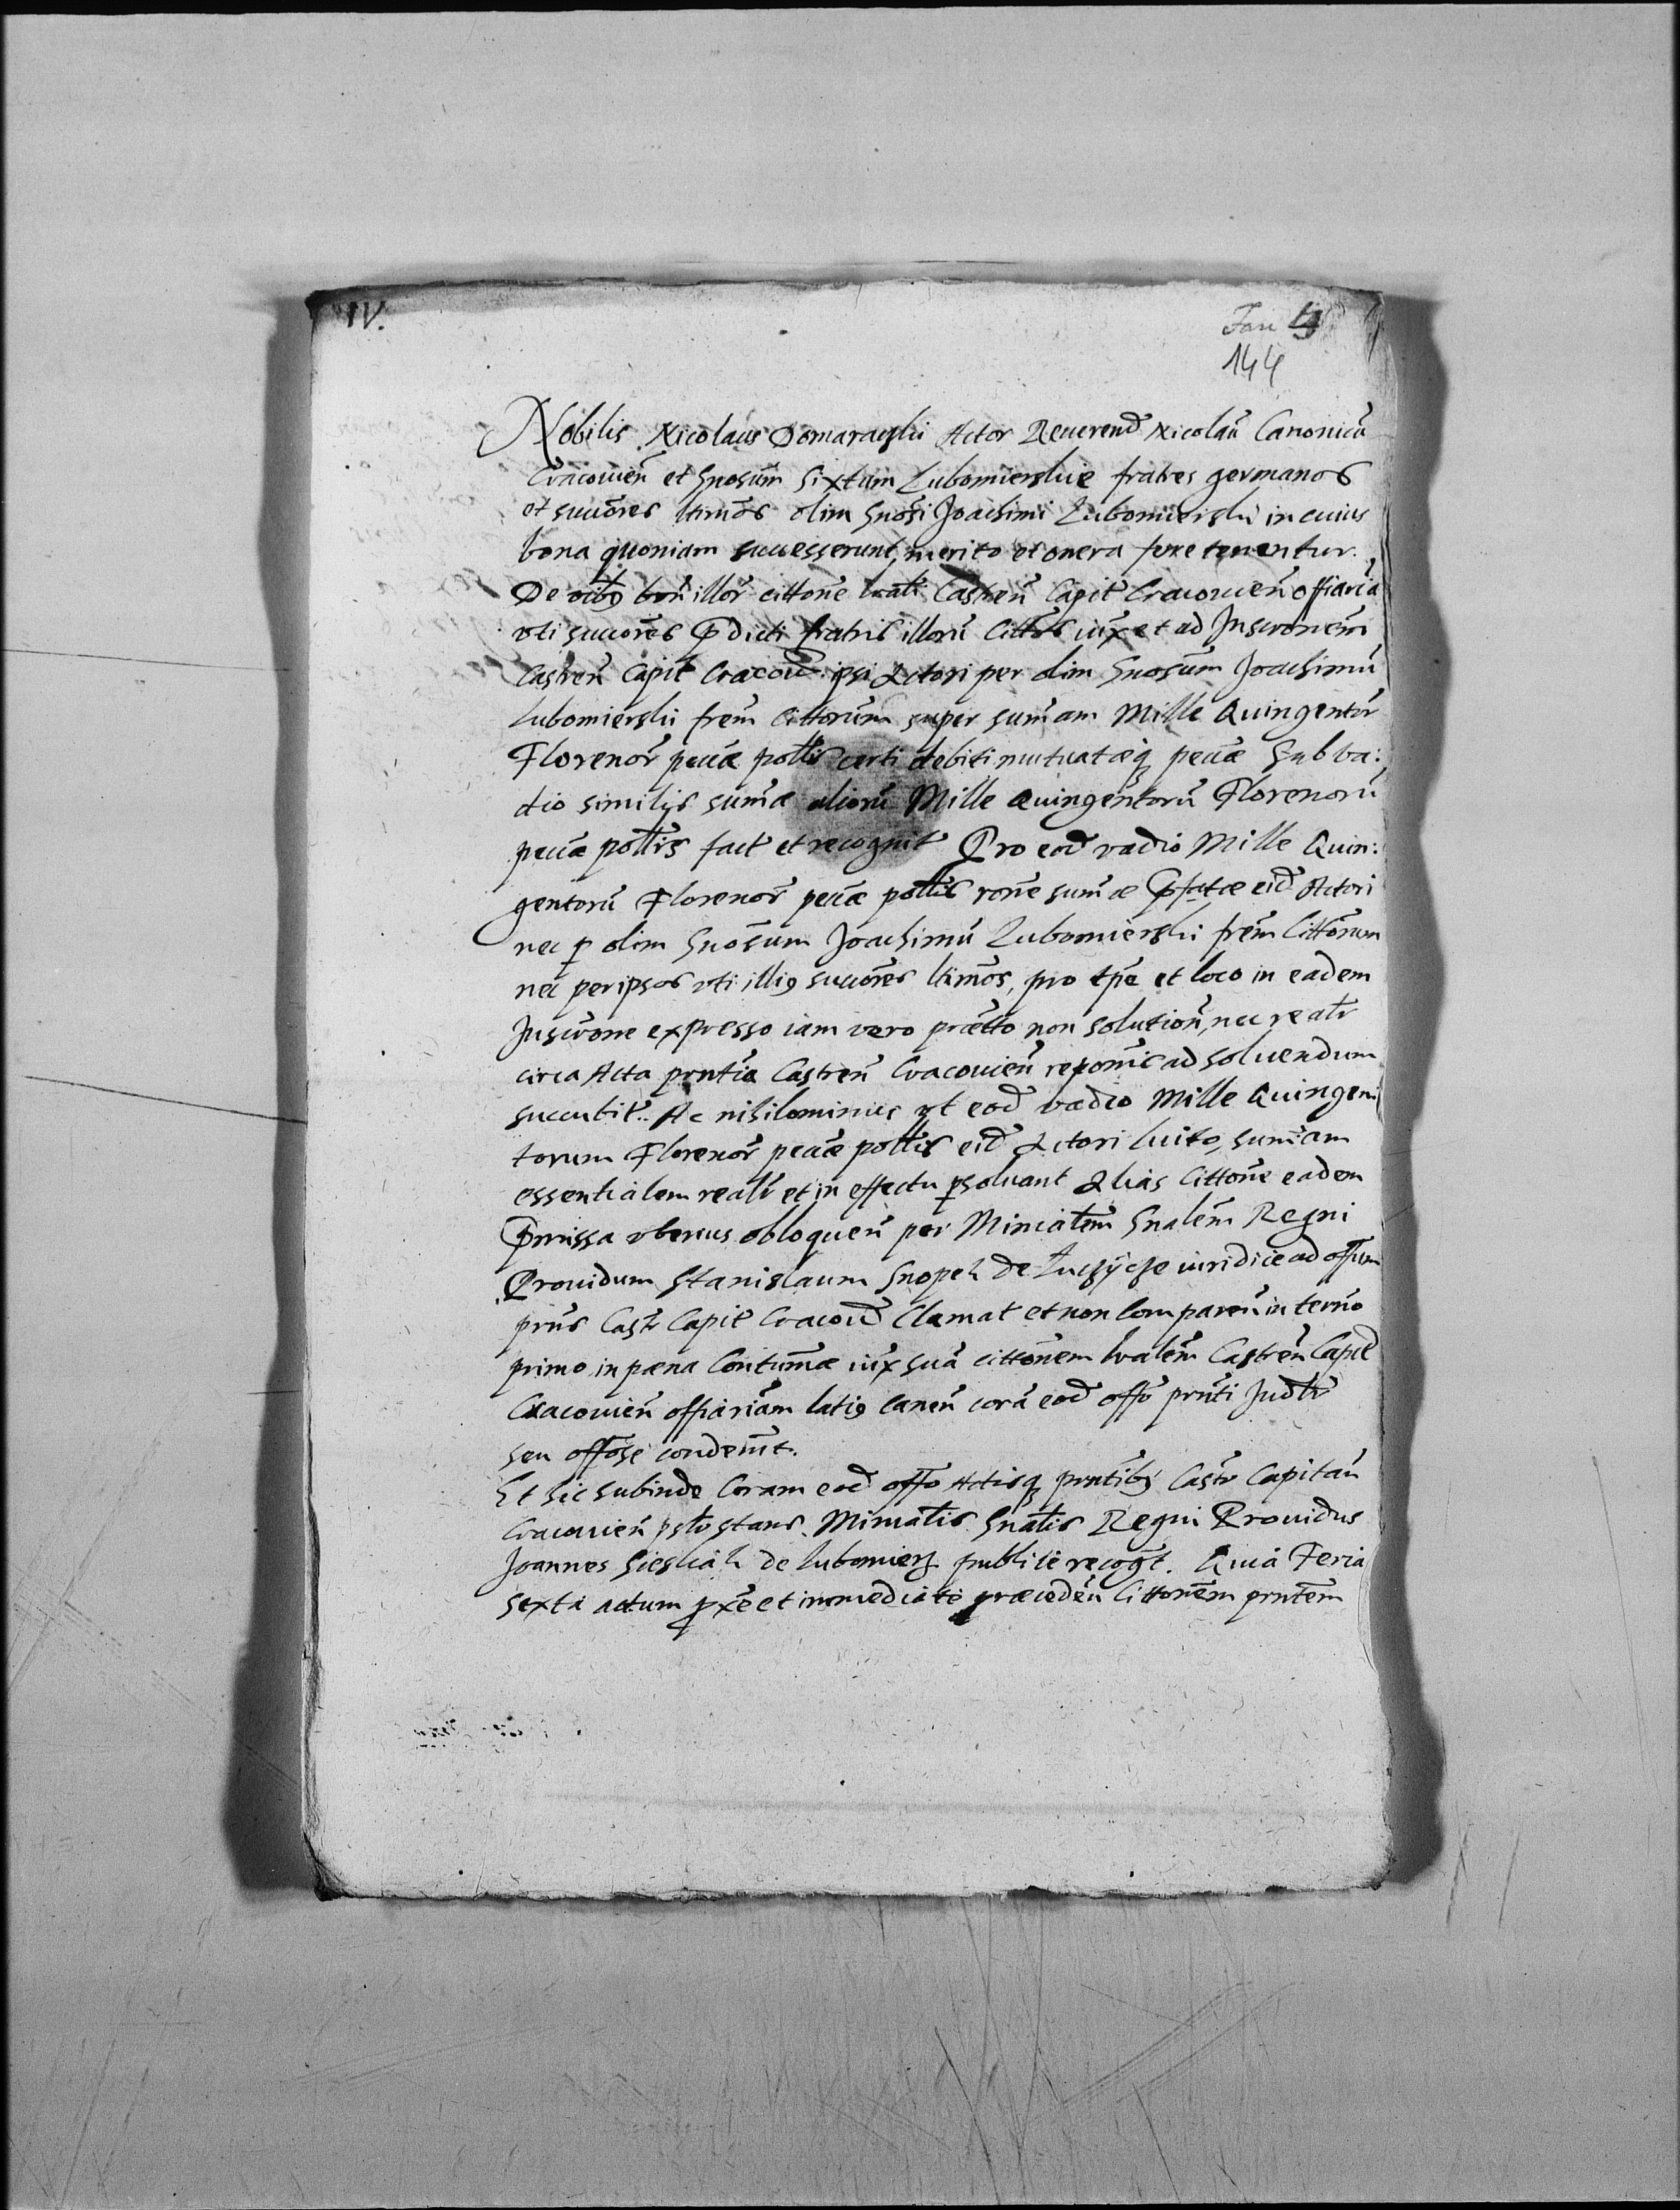 IV.
Fan 4
144
Nobilis Nicolaus Domaraczki Actor Reuerend Nicolaũ Canonicũ
Cracouieñ et Gnosum Sixtum Lubomierskie fratres germanos
et succores ltimos olim Gnosi Joachimi Lubomierski in cuius
bona quoniam successerunt, merito et onera ferre tenentur.
De oibq boñ illor cittone lrali Castreñ Capit Cracouieñ officiaria
vti succores pdicti fratris illorũ Cittos iux et ad Inscronem
Castreñ Capit Cracou ipsi Actori per olim Gnosum Joachimũ
Lubomierski frem Cittorum super sumam Mille Quingentor
Florenor pecciæ pollis certi debiti mutuatæq pecciæ Sub va:
dio similis sumæ aliorũ Mille Quingentorũ Florenorũ
pecciæ pollis fact et recognit Pro eod vadio Mille Quin:
gentorũ Florenor pecciæ pollis rone sumæ pfatæ eid Actori
nec p olim Gnosum Joachimũ Lubomierski frem Cittorum
nec per ipsos vti illiq succores ltimos, pro tpe et loco in eadem
Inscrone expresso iam vero præterito non solution, nec realr
circa Acta prntia Castreñ Cracouieñ reponis ad soluendum
succubit. Ac nihilominus vt eod vadio Mille Quingen
torum Florenor pecciæ pollis eid Actori luito, sumam
essentialem realr et in effectu psoluant Alias Cittone eadem
Pmissa vberius obloqueñ per Ministm Gnalem Regni
Prouidum Stanislaum Snopek de Luczycze iuridice ad offum
prns Castr Capit Cracou Clamat et non Compareñ in termo
primo in pæna Contumæ iux suã cittonem lralem Castreñ Capit
Cracouieñ officiariam latiq caneñ corã eod offo prnti Judlr
seu offose condemt.
Et sic subinde Coram eod offo Actisq prntibq Castr Capitañ
Cracouieñ pslr stans Ministlis Gnalis Regni Prouidus
Joannes Siesliak de Lubomierz publice recogt. Quia Feria
Sexta actum pxe et immediate præcedeñ Cittonem prntem